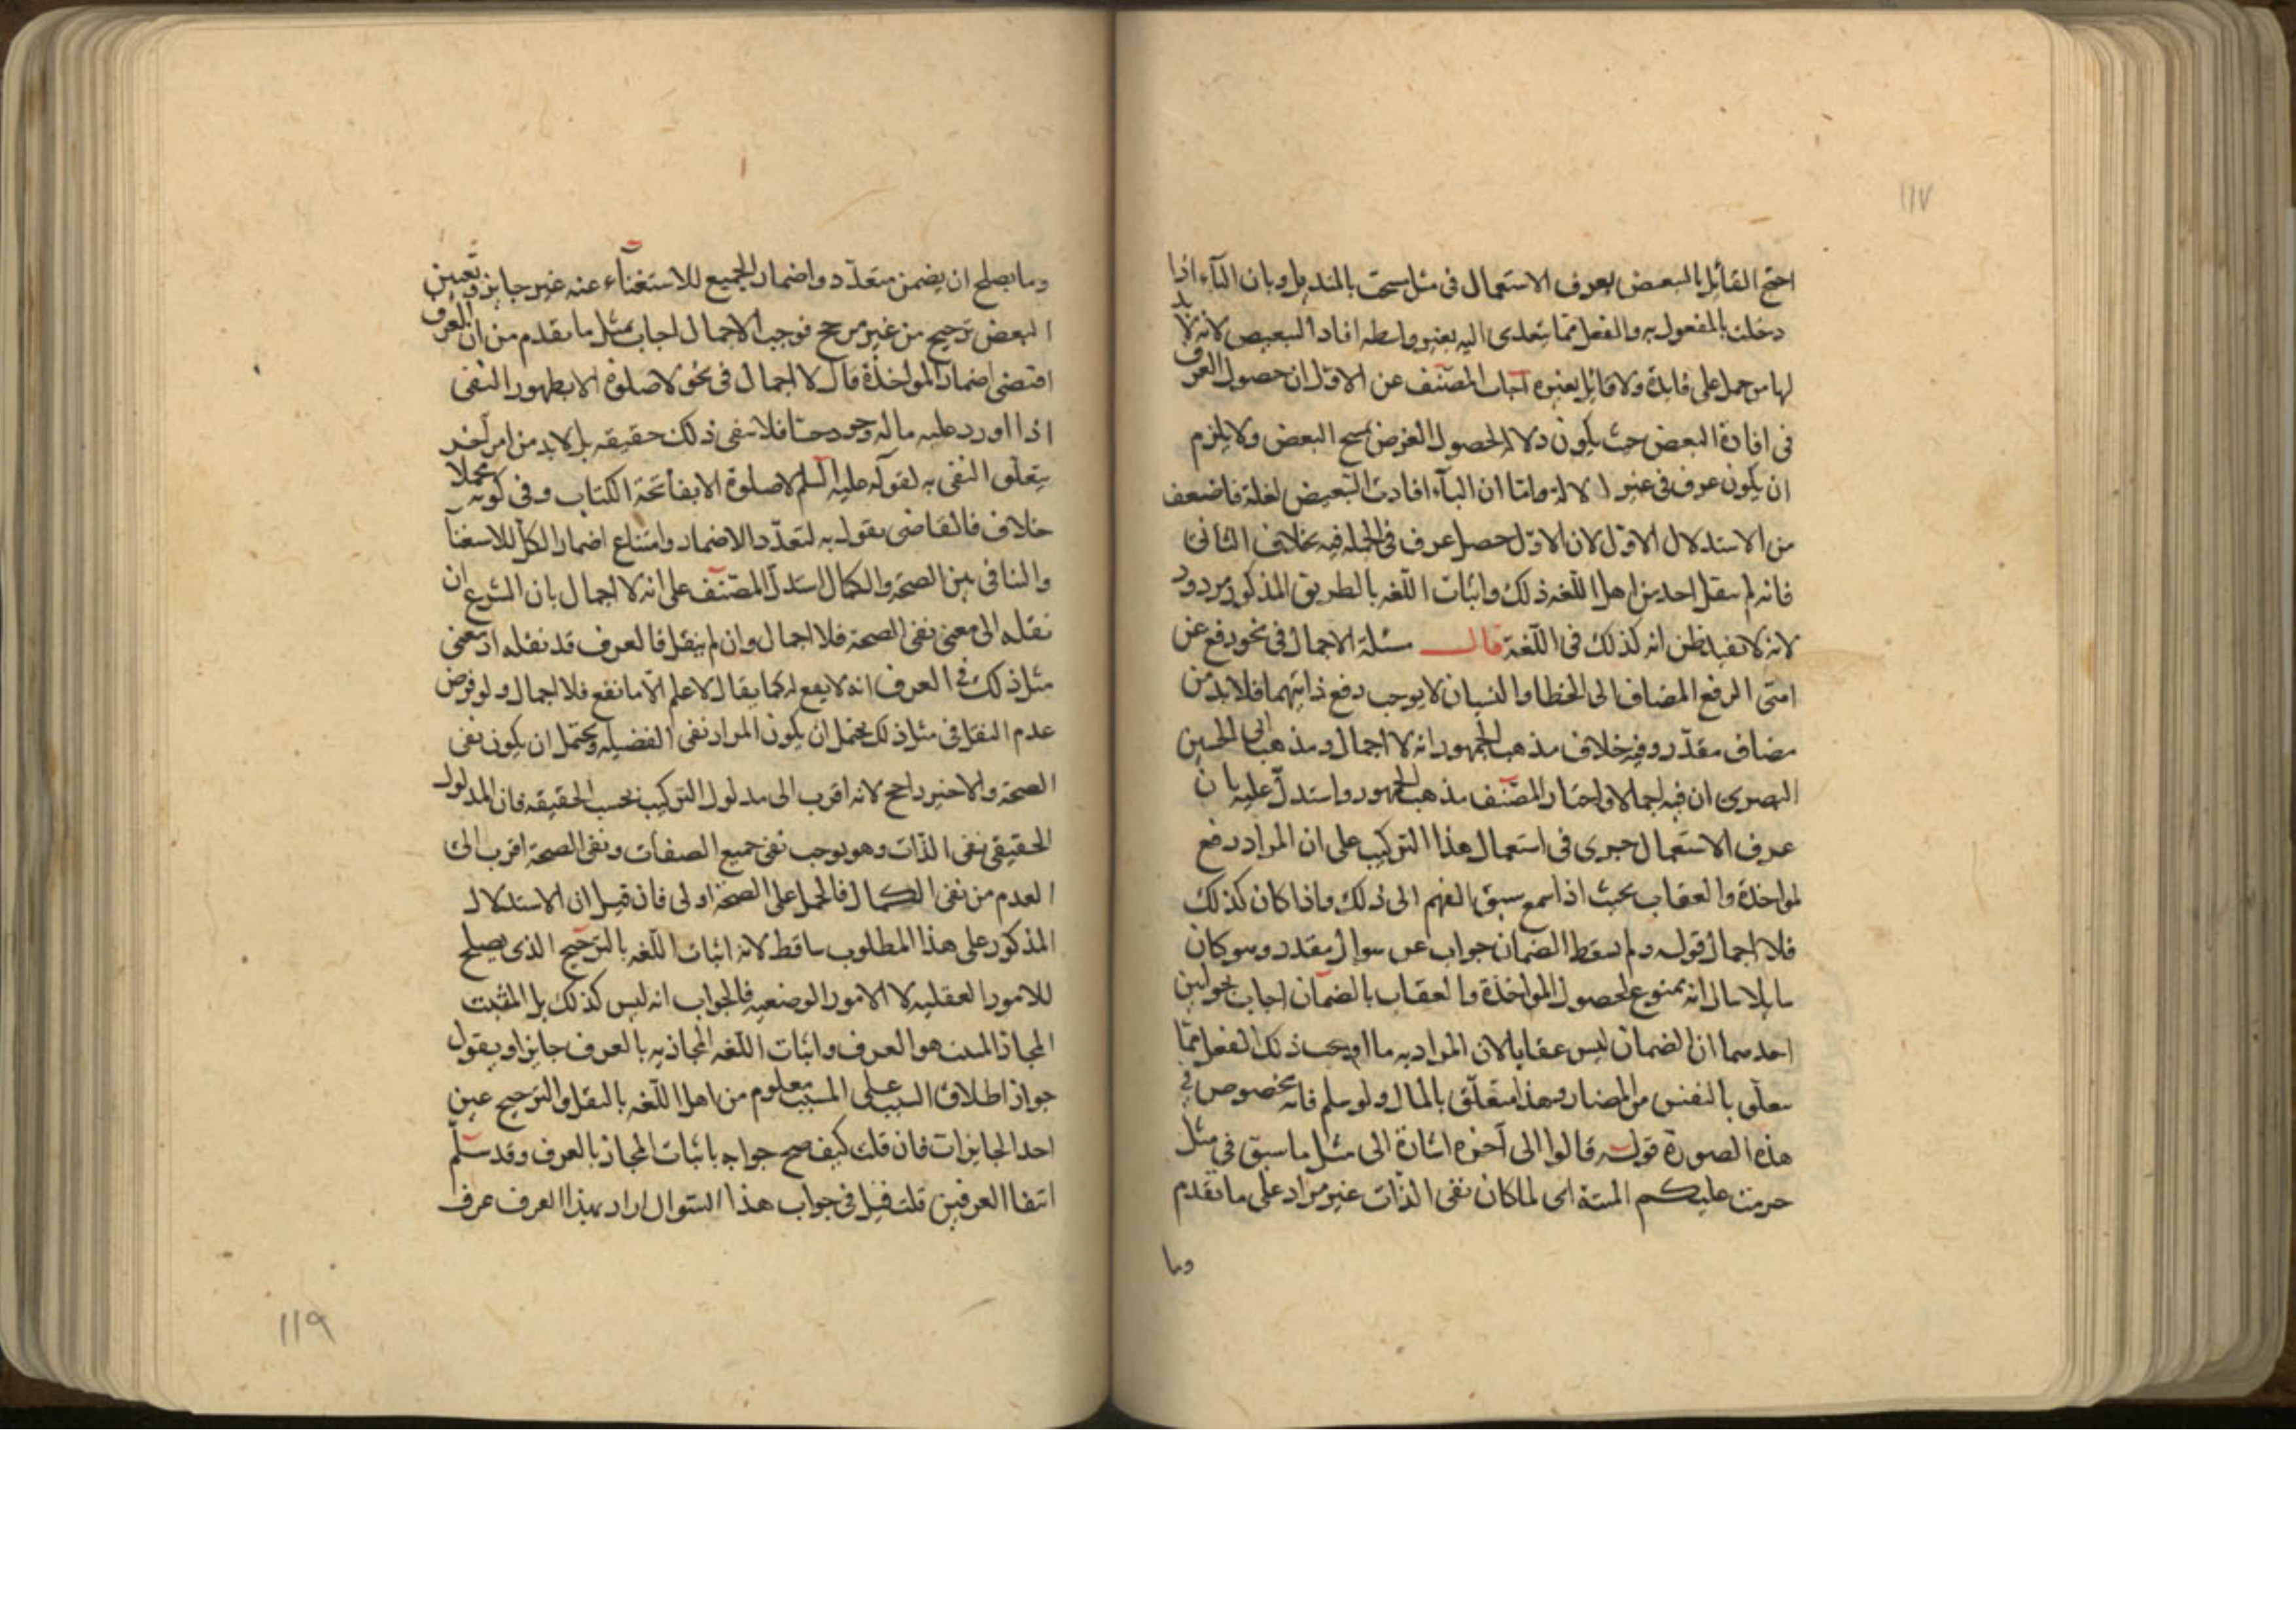 ١١٧
احتج القائل بالبعض بعرف الاستعمال في مثل مسحت بالمنديل وبان الباء اذا
دخلت بالمفعول به والفعل مما يتعدى اليه بغير واسطه افاد التبعيض لانه لابد
لها من حمل على فايدة ولا قايل بغيره اجاب المصنف عن الاول ان حصول العرف
في افادة البعض حيث يكون دلالة لحصول الغرض بمسح البعض ولا يلزم
ان يكون عرف في غير الالة واما ان الباء افادت التبعيض لغلة فاضعف
من الاستدلال الاول لان الاول حصل عرف في الجمله فيه بخلاف الثاني
فانه لم ينقل احد من اهل اللغه ذلك واثبات اللغه بالطريق المذكور مردود
لانه لا يفيد ظن انه كذلك في اللغة قال مسئلة الاجمال في نحو رفع عن
امتي الرفع المضاف الى الخطا والنسيان لا يوجب رفع ذاتهما فلا بد من
مضاف مقدر وفيه خلاف مذهب الجمهور انه لا اجمال ومذهب ابي الحسين
البصري ان فيه اجمالا واختار المصنف مذهب الجمهور واستدل عليه بان
عرف الاستعمال جرى في استعمال هذا التركيب على ان المراد رفع
لمواخذة والعقاب بحيث اذا سمع سبق الفهم الى ذلك واذا كان كذلك
فلا اجمال قوله ولم يسقط الضمان جواب عن سوال مقدر وهو كان
سايلا سال انه ممنوع لحصول المواخذة والعقاب بالضمان اجاب بجوابين
احدهما ان الضمان ليس عقابا لان المراد به ما اوجب ذلك الفعل مما
يتعلق بالنفس من المضار وهذا متعلق بالمال ولو سلم فانه مخصوص في
هذه الصورة قوله قالوا الى آخره اشارة الى مثل ما سبق في مثل
حرمت عليكم الميتة اى لما كان نفى الذات غير مراد على ما تقدم
وما
وما يصلح ان يضمن متعدد واضمار الجميع للاستغناء عنه غير جايز وتعين
البعض ترجيح من غير مرجح فوجب الاجمال اجاب بمثل ما تقدم من ان العرف
اقتضى اضمار المواخذة قال لا اجمال في نحو لا صلوة الا بطهور النفى
اذا اورد على ما له وجود حسا فلا ينفى ذلك حقيقه بل لابد من امر آخر
يتعلق النفى به لقوله عليه السلم لا صلوة الا بفاتحة الكتاب وفي كونه مجملا
خلاف فالقاضى يقول به لتعدد الاضمار وامتناع اضمار الكل للاستغنا
والتنافى بين الصحة والكمال استدل المصنف على انه لا اجمال بان الشرع ان
نقله الى معنى نفى الصحة فلا اجمال وان لم ينقل فالعرف قد نقله اذ معنى
مثل ذلك في العرف انه لا ينفع له كما يقال لا علم الا ما نفع فلا اجمال ولو فرض
عدم النقل في مثل ذلك يحتمل ان يكون المراد نفى الفضيله ويحتمل ان يكون نفى
الصحة والاخير راجح لانه اقرب الى مدلول التركيب بحسب الحقيقه فان المدلول
الحقيقى نفى الذات وهو يوجب نفى جميع الصفات ونفى الصحة اقرب الى
العدم من نفى الكمال فالحمل على الصحة اولى فان قيل ان الاستدلال
المذكور على هذا المطلوب ساقط لانه اثبات اللغه بالترجيح الذى يصلح
للامور العقليه لا الامور الوضعيه فالجواب انه ليس كذلك بل المثبت
المجاز المبين هو العرف واثبات اللغه المجازيه بالعرف جايز او يقول
جواز اطلاق السبب على المسبب معلوم من اهل اللغه بالنقل والترجيح عين
احد الجايزات فان قلت كيف صح جوابه باثبات المجاز بالعرف وقد سلم
انتفا العرفين قلت قيل في جواب هذا السوال اراد بهذا العرف عرف
١١٩